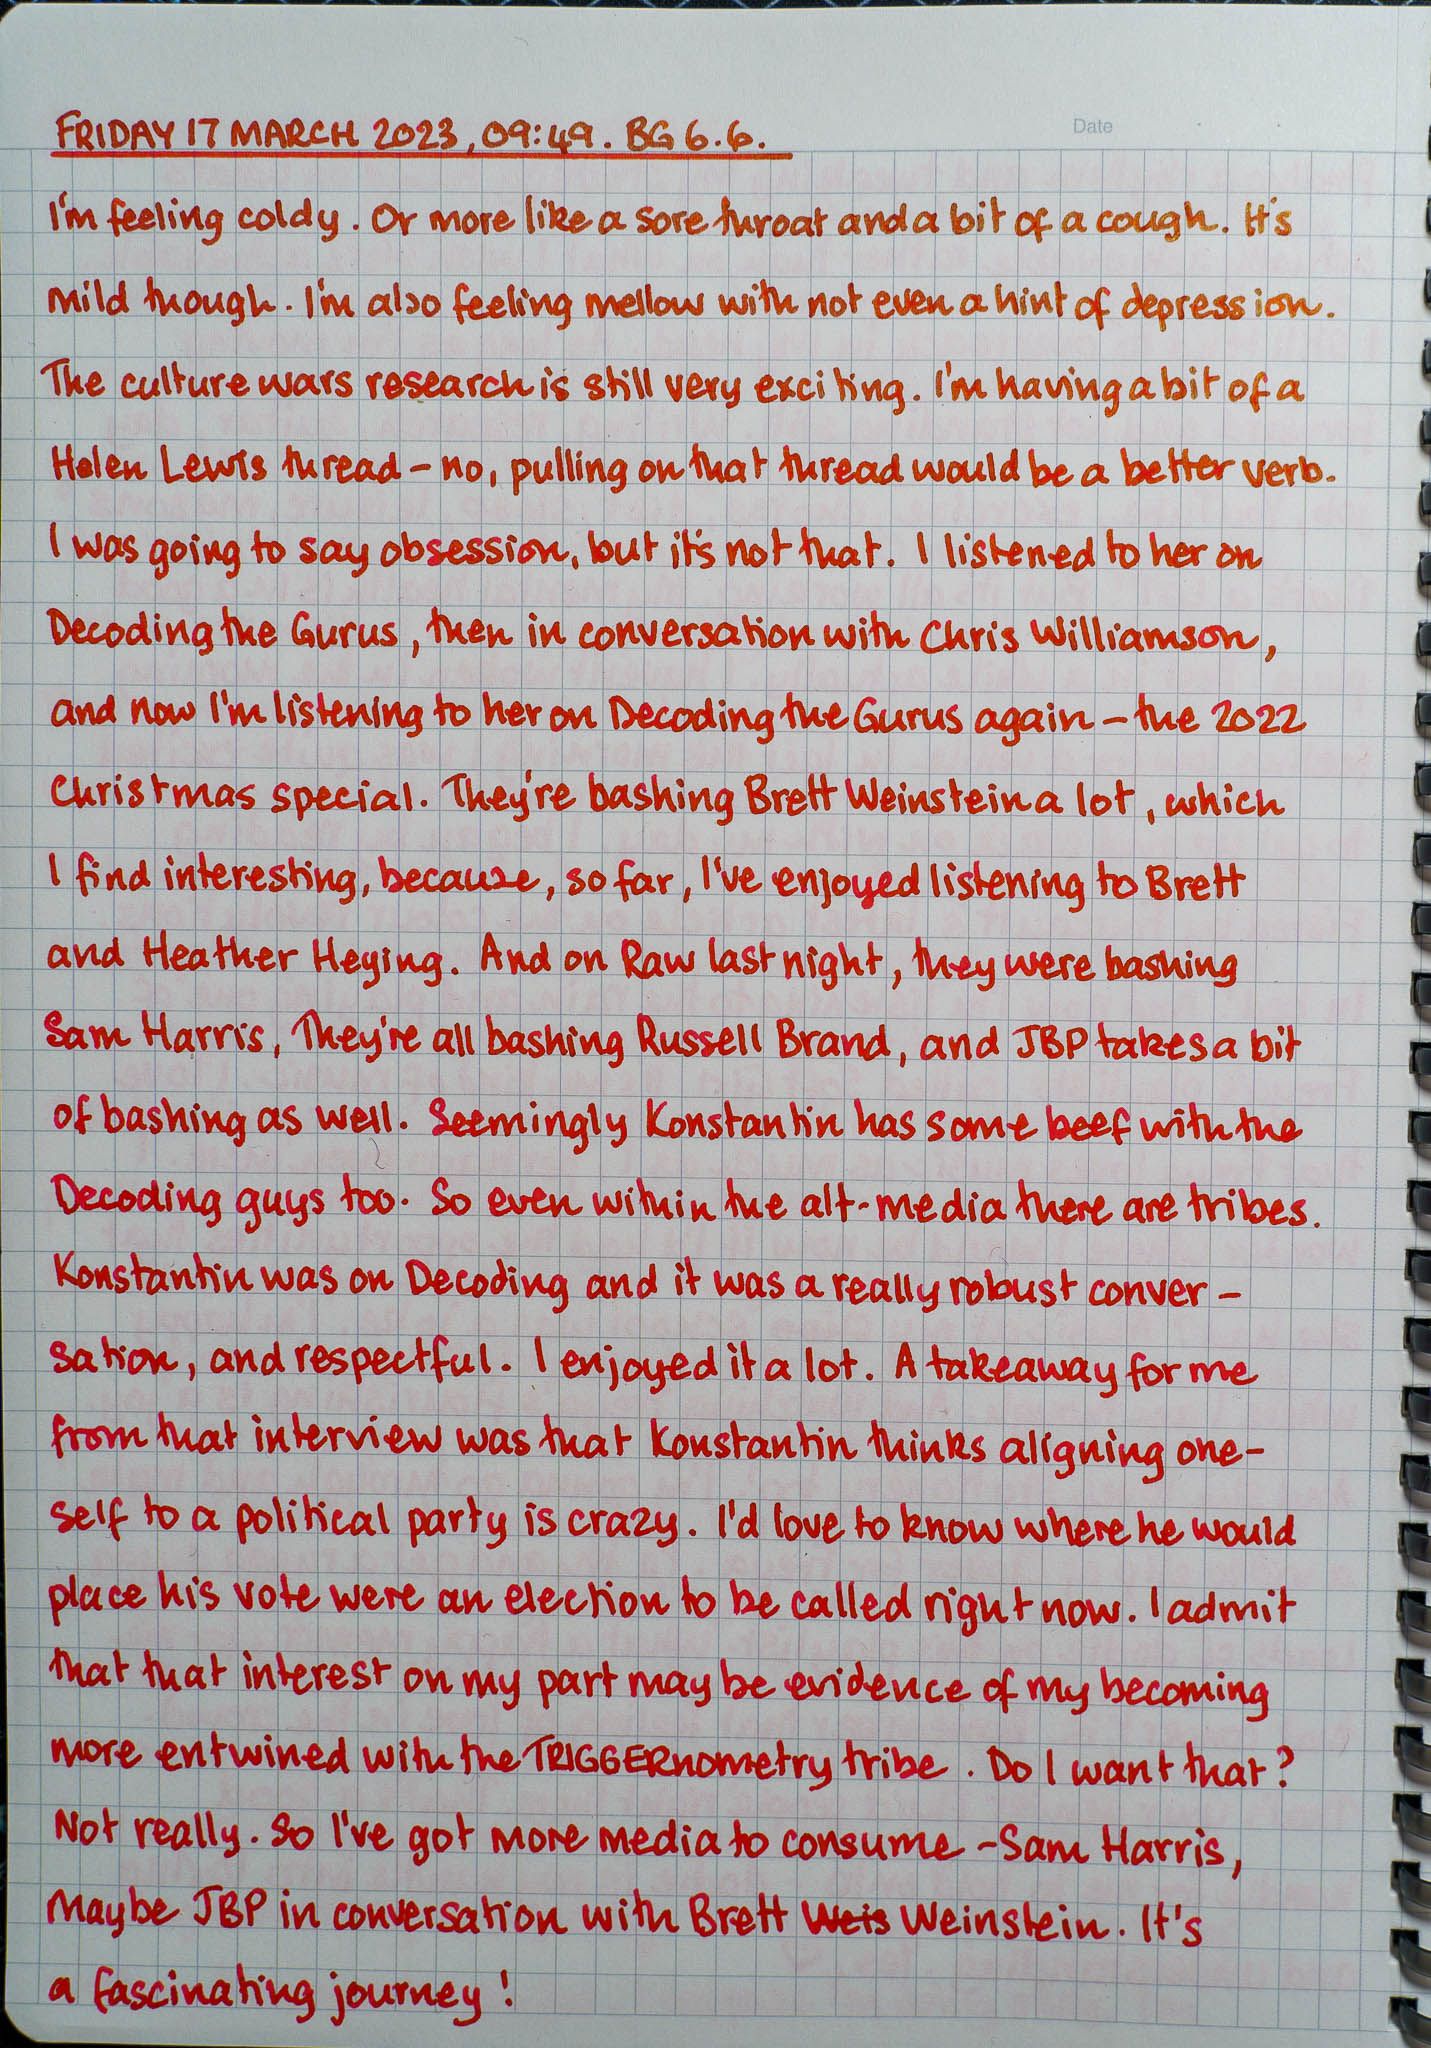 Date
FRIDAY 17 MARCH 2023, 09:49. BG 6.6.
I'm feeling coldy. Or more like a sore throat and a bit of a cough. It's
mild though. I'm also feeling mellow with not even a hint of depression.
The culture wars research is still very exciting. I'm having a bit of a
Helen Lewis thread – no, pulling on that thread would be a better verb.
I was going to say obsession, but it's not that. I listened to her on
Decoding the Gurus, then in conversation with Chris Williamson,
and now I'm listening to her on Decoding the Gurus again – the 2022
Christmas special. They're bashing Brett Weinstein a lot, which
I find interesting, because, so far, I've enjoyed listening to Brett
and Heather Heying. And on Raw last night, they were bashing
Sam Harris, They're all bashing Russell Brand, and JBP takes a bit
of bashing as well. Seemingly Konstantin has some beef with the
Decoding guys too. So even within the alt-media there are tribes.
Konstantin was on Decoding and it was a really robust conver –
sation, and respectful. I enjoyed it a lot. A takeaway for me
from that interview was that Konstantin thinks aligning one–
self to a political party is crazy. I'd love to know where he would
place his vote were an election to be called right now. I admit
that that interest on my part may be evidence of my becoming
more entwined with the TRIGGERnometry tribe. Do I want that?
Not really. So I've got more media to consume – Sam Harris,
Maybe JBP in conversation with Brett Weis Weinstein. It's
a fascinating journey!